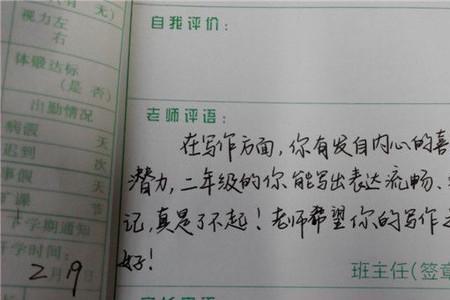 无)
视力左
右
体锻达标
(是 否)
出勤情况
病假 天
迟到 次
事假 天
旷课 节
下学期通知
开学时间:
2月19日
自我评价:
老师评语:
在写作方面,你有发自内心的喜
潜力,二年级的你能写出表达流畅、
记,真是了不起!老师希望你的写作
好!
班主任(签章